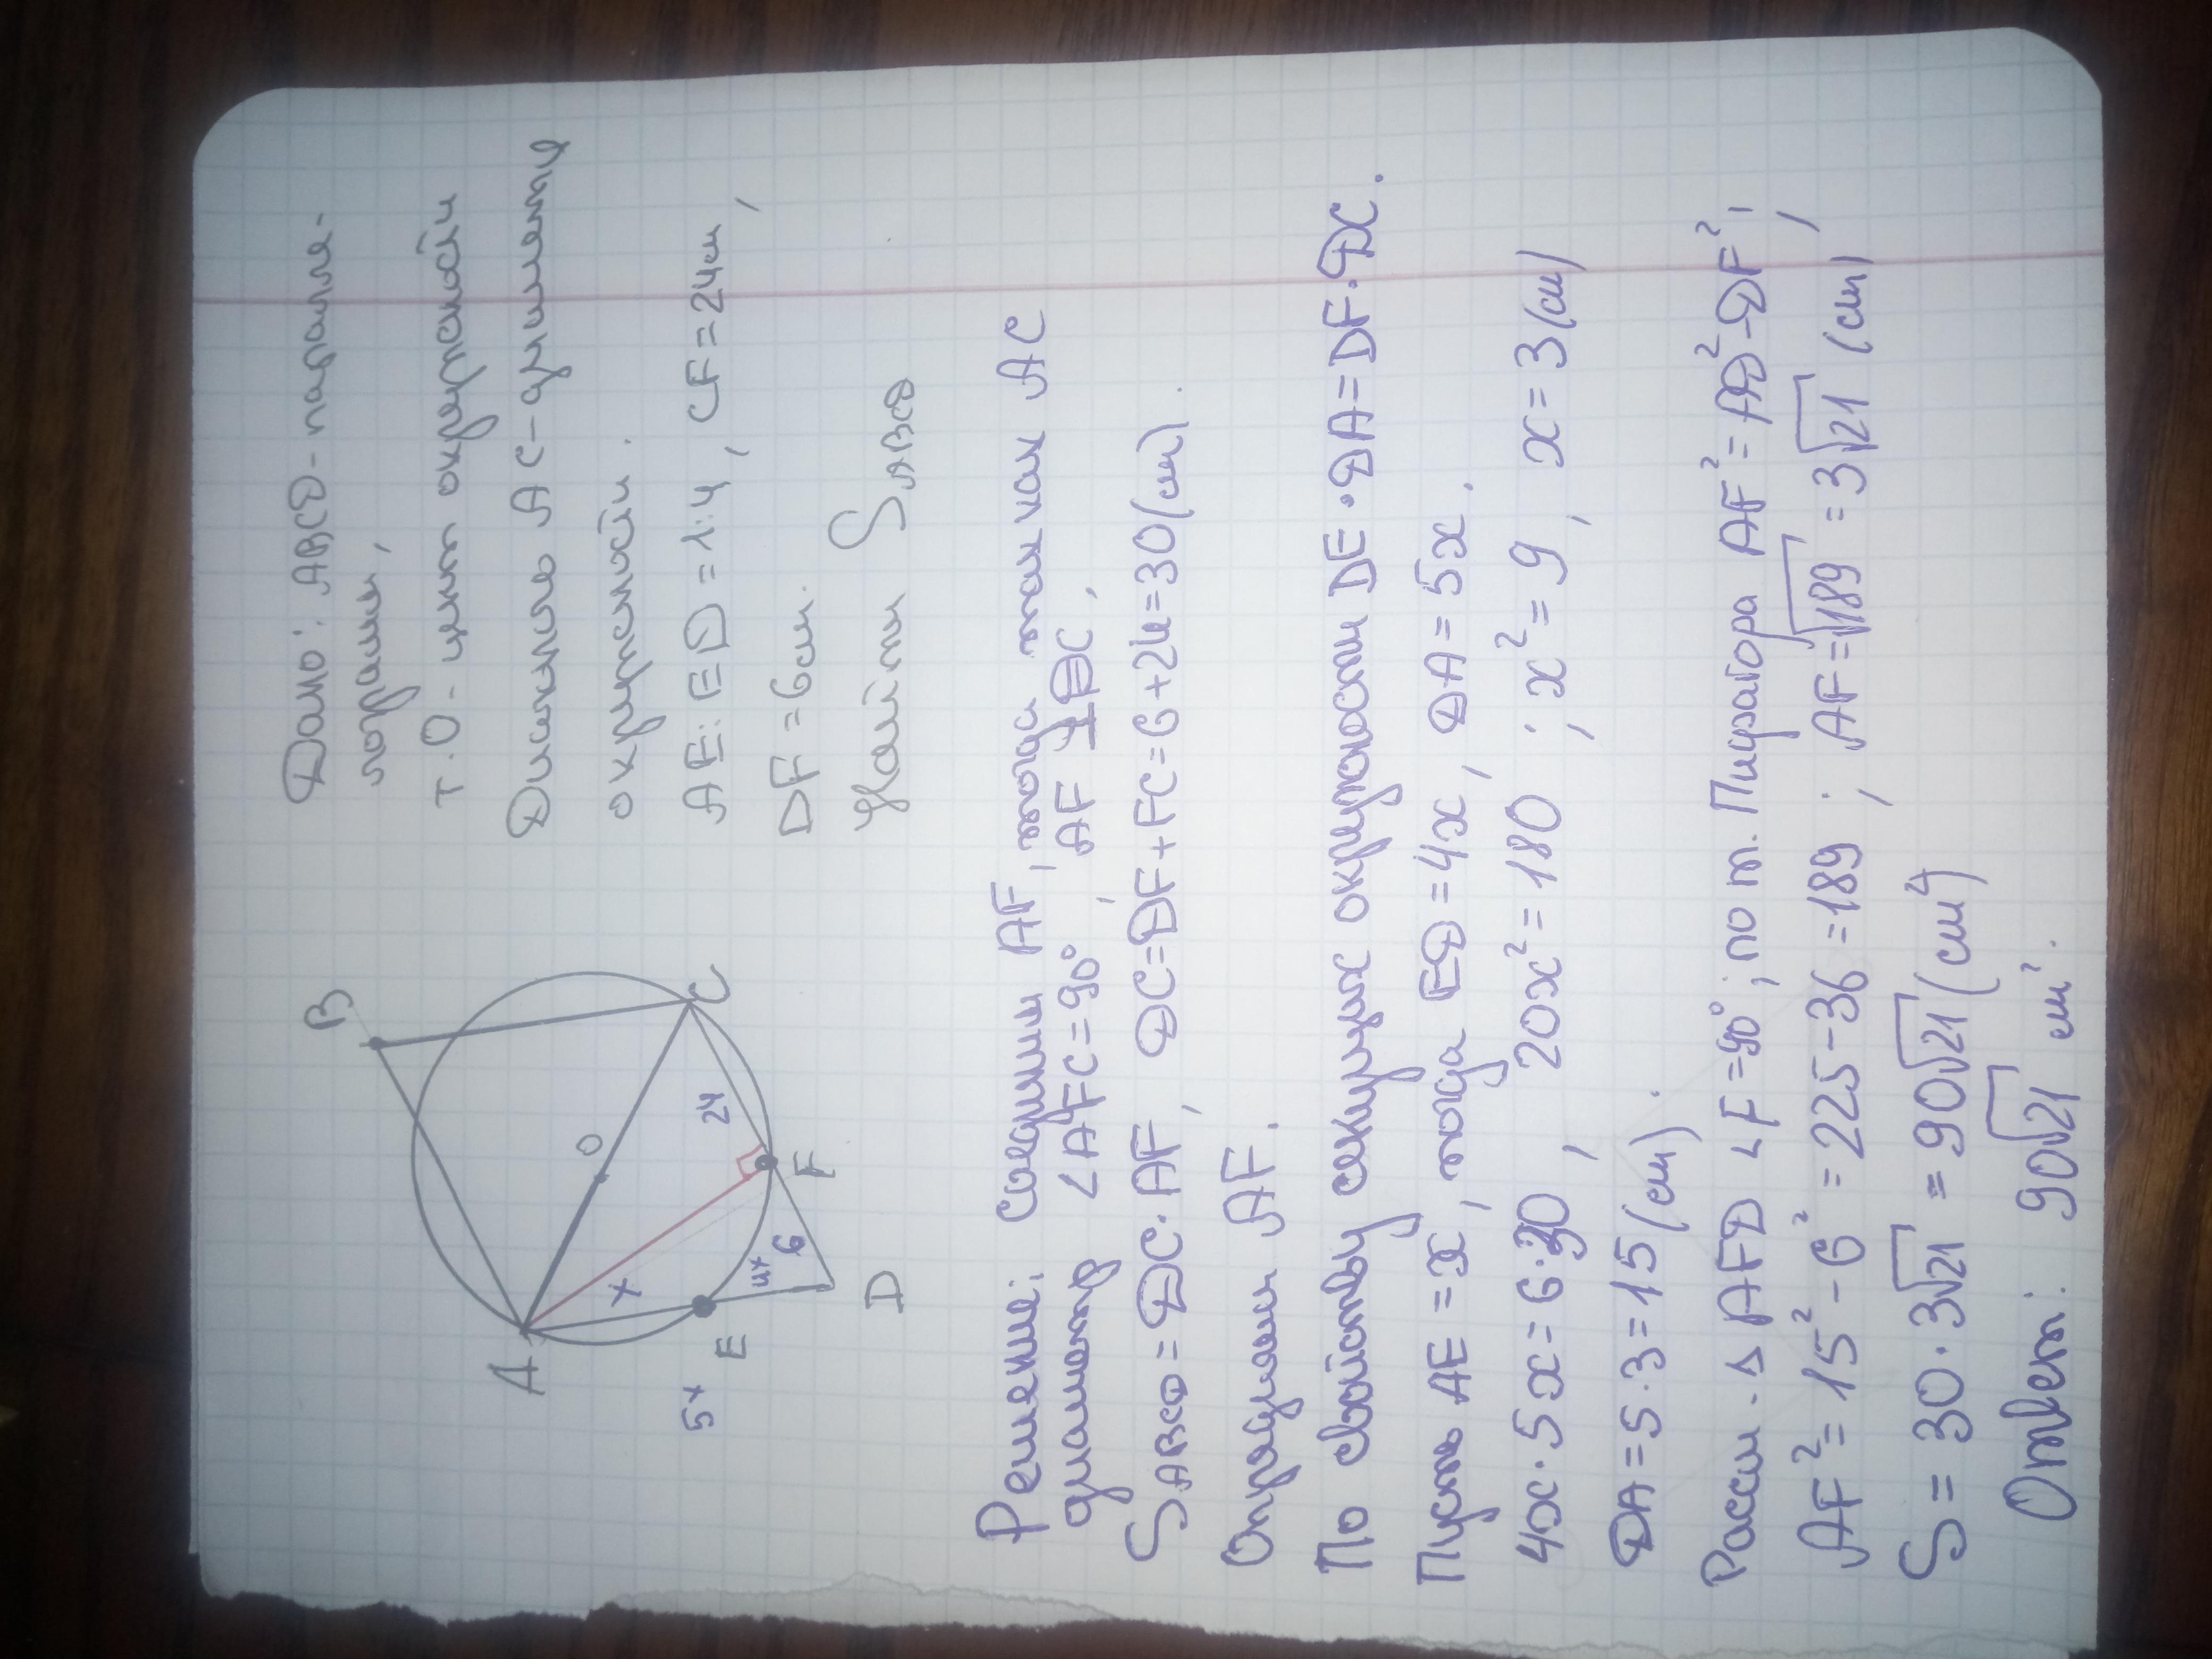 Дано: ABCD - паралле-
лограмм,
т. O - центр окружностй
Диагональ AC - диаметр
окружностй.
AE:ED=1:4, CF=24см,
DF=6см.
Найти S ABCD
A
B
C
D
E
F
O
x
4x
5x
6
24
Решение: Соединим AF, тогда так как AC
диаметр ∠AFC=90°, AF⊥DC,
S ABCD=DC·AF, DC=DF+FC=6+24=30(см).
Определим AF.
По свойству секущих окружности DE·DA=DF·DC.
Пусть AE=x, тогда ED=4x, DA=5x.
4x·5x=6·30, 20x²=180; x²=9, x=3(см)
DA=5·3=15(см).
Рассм. ΔAFD ∠F=90°; по т. Пифагора AF²=AD²-DF²;
AF²=15²-6²=225-36=189; AF=√189=3√21(см),
S=30·3√21=90√21(см²)
Ответ: 90√21 см².